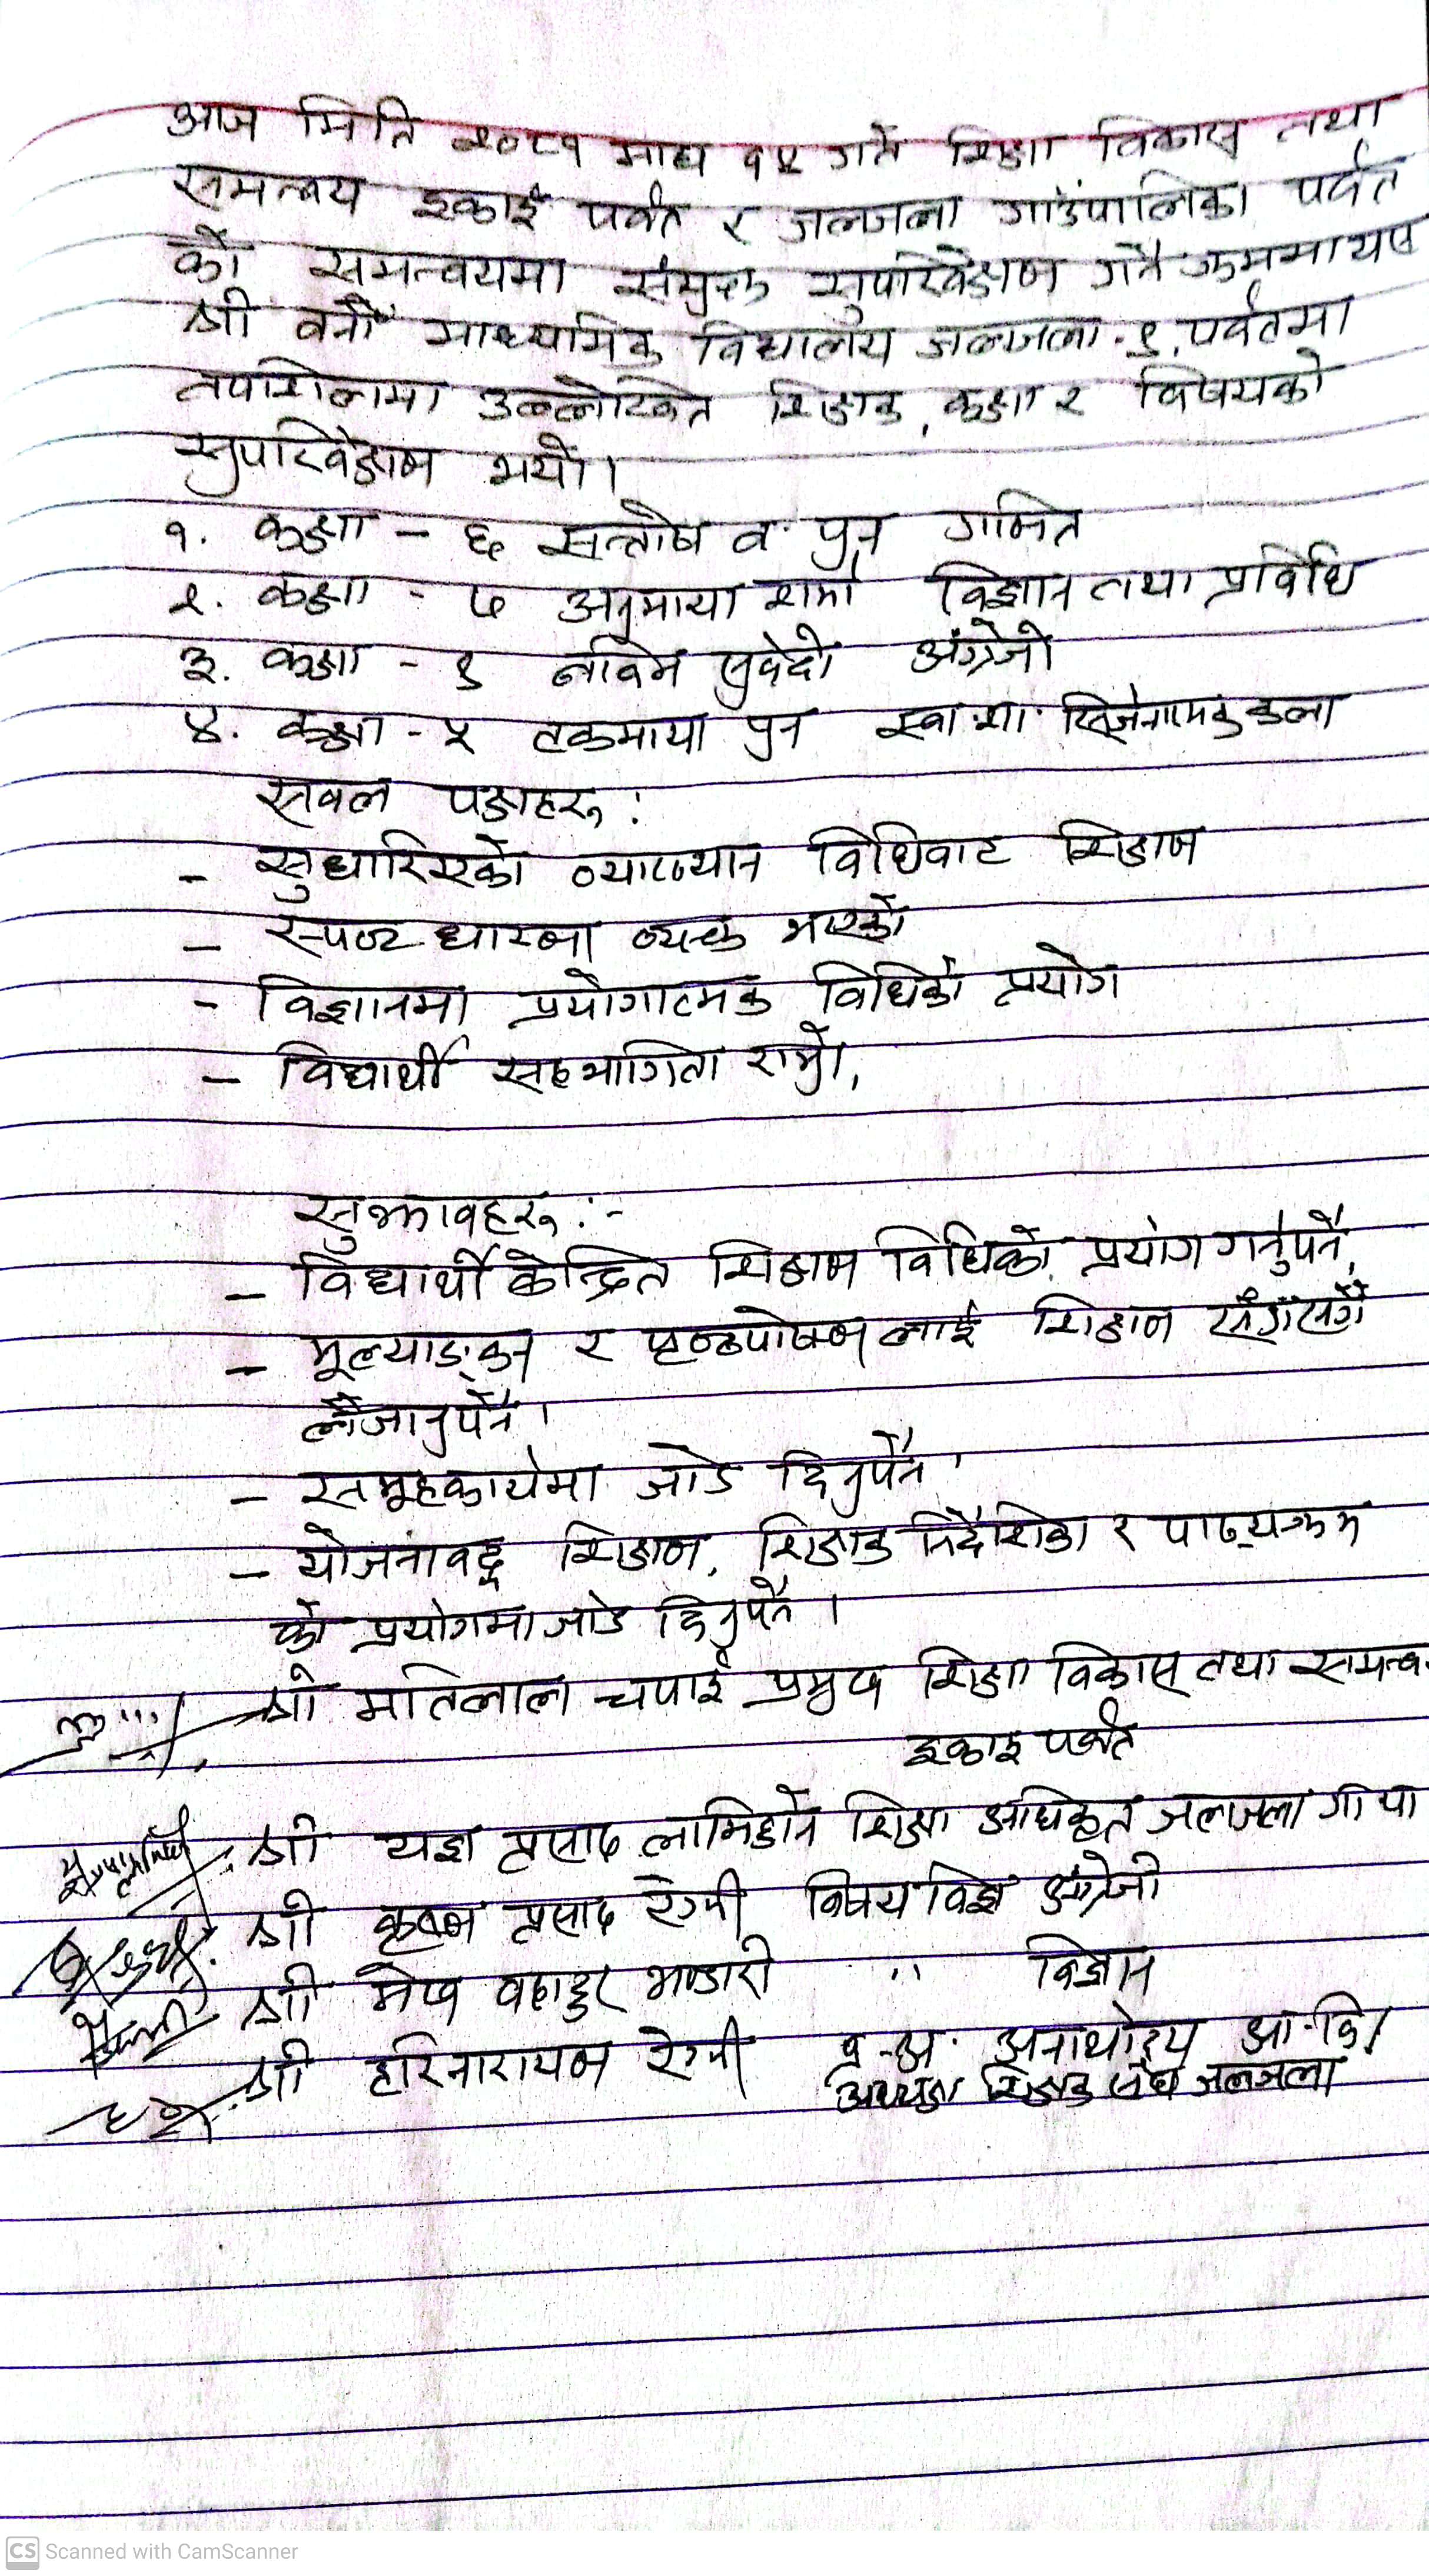 आज मिति २०८१ माघ १५ गते शिक्षा विकास तथा
समन्वय इकाई पर्वत र जलजला गाउँपालिका पर्वत
को समन्वयमा संयुक्त सुपरिवेक्षण गर्ने क्रममा यस
श्री वनौं माध्यामिक विद्यालय जलजला-१, पर्वतमा
तपशिलमा उल्लेखित शिक्षक, कक्षा र विषयको
सुपरिवेक्षण भयो।
१. कक्षा - ६ सन्तोष व. पुन गणित
२. कक्षा - ७ अनुमाया शर्मा विज्ञान तथा प्रविधि
३. कक्षा - १ नविन सुवेदी अंग्रेजी
४. कक्षा - ५ टकमाया पुन स्वा. शा. सिर्जनात्मक कला
सवल पक्षहरू :
- सुधारिएको व्याख्यान विधिवाट शिक्षण
- स्पष्ट धारणा व्यक्त भएको
- विज्ञानमा प्रयोगात्मक विधिको प्रयोग
- विद्यार्थी सहभागिता राम्रो,
सुझावहरू :-
- विद्यार्थी केन्द्रित शिक्षण विधिको प्रयोग गर्नुपर्ने,
- मूल्याङ्कन र पृष्ठपोषणलाई शिक्षण सँगसगै
लैजानुपर्ने।
- समूहकार्यमा जोड दिनुपर्ने।
- योजनावद्ध शिक्षण, शिक्षक निर्देशिका र पाठ्यक्रम
को प्रयोगमा जोड दिनुपर्ने।
श्री मतिलाल चपाई प्रमुख शिक्षा विकास तथा समन्व
इकाइ पर्वत
श्री यज्ञ प्रसाद लामिछाने शिक्षा अधिकृत जलजला गा पा
श्री कृष्ण प्रसाद रेग्मी विषय विज्ञ अंग्रेजी
श्री मेख वहादुर भण्डारी " विज्ञान
श्री हरिनारायण रेग्मी प्र-अ. जनाथोदय आ.वि.
अध्यक्ष शिक्षक संघ जलजला
CS Scanned with CamScanner